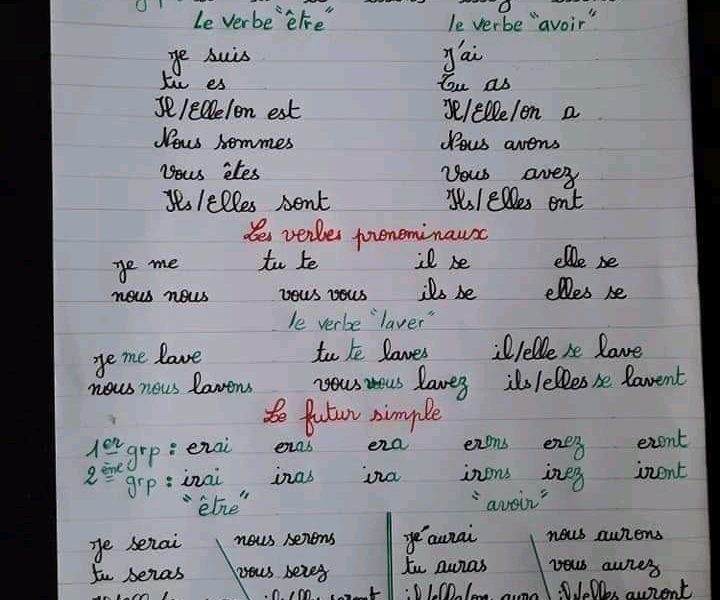 le verbe "être" le verbe "avoir"
je suis J'ai
tu es Tu as
Il/Elle/on est Il/Elle/on a
Nous sommes Nous avons
Vous êtes Vous avez
Ils/Elles sont Ils/Elles ont
Les verbes pronominaux
je me tu te il se elle se
nous nous vous vous ils se elles se
le verbe "laver"
je me lave tu te laves il/elle se lave
nous nous lavons vous vous lavez ils/elles se lavent
Le futur simple
1er grp : erai eras era erons erez eront
2ème grp : irai iras ira irons irez iront
"être" "avoir"
je serai nous serons je aurai nous aurons
tu seras vous serez tu auras vous aurez
il/elle/on aura ils/elles auront